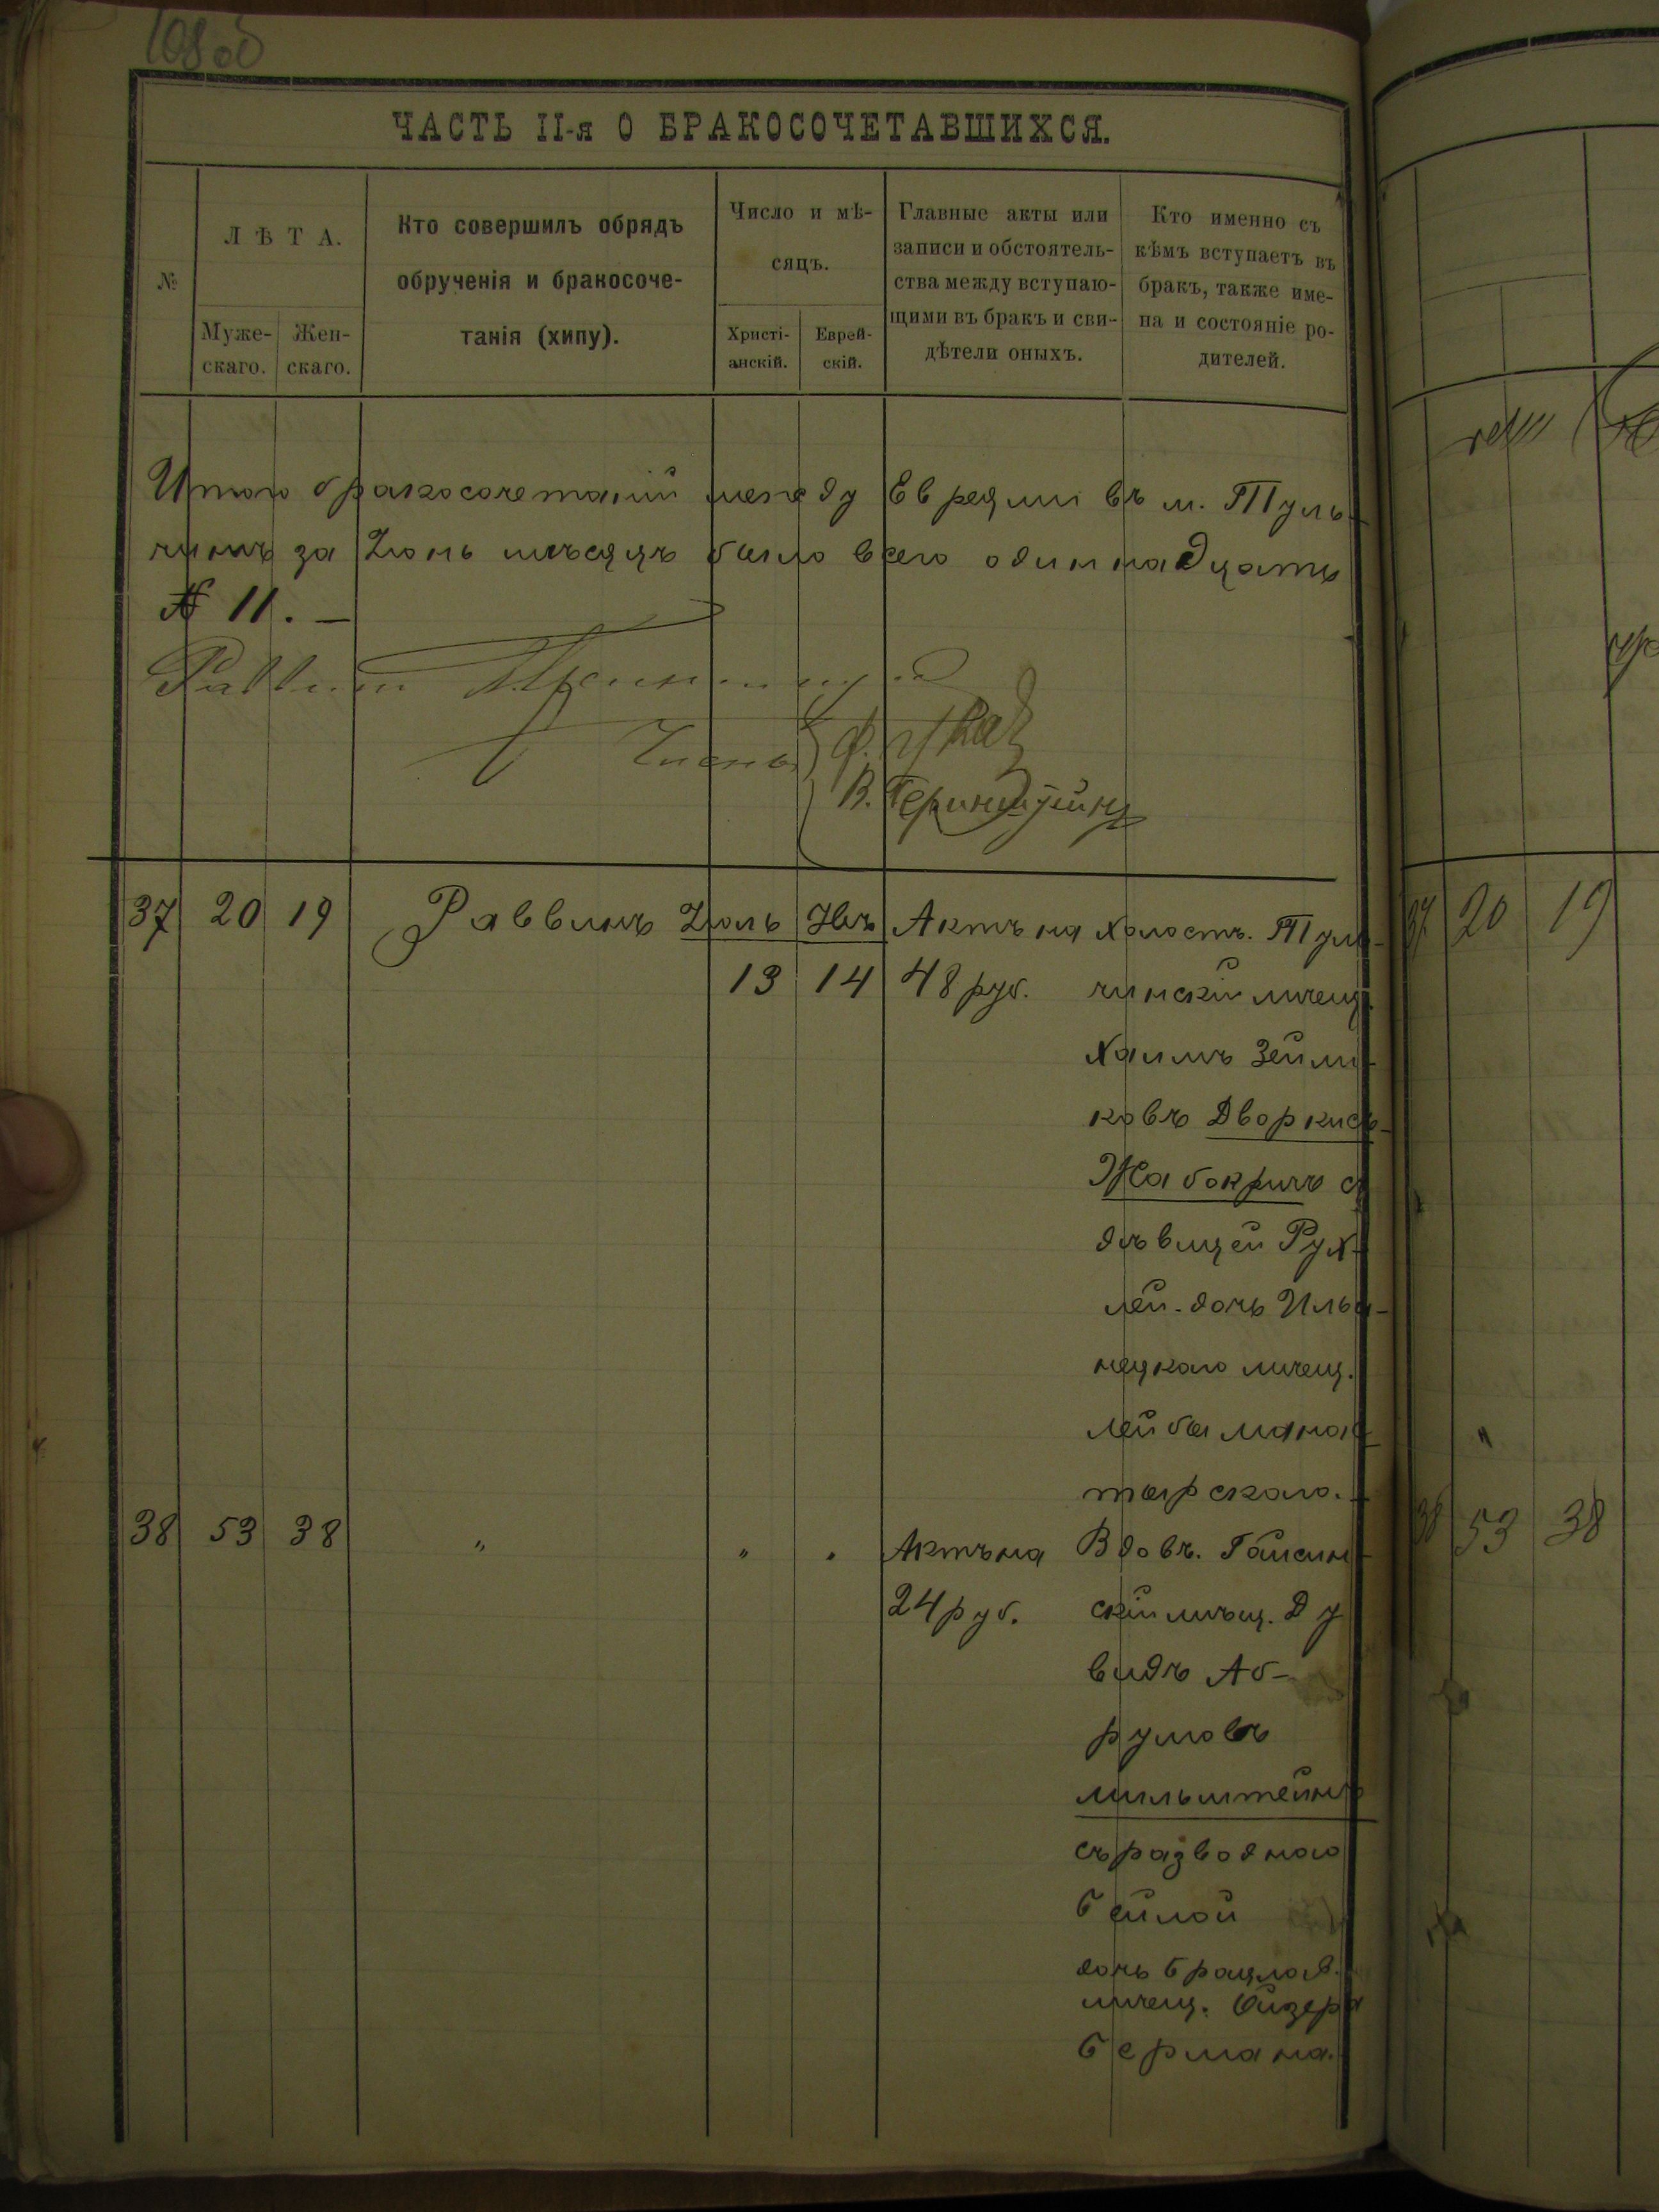 108 об
ЧАСТЬ II-я О БРАКОСОЧЕТАВШИХСЯ.
№
ЛѢТА.
Муже-
скаго.
Жен-
скаго.
Кто совершилъ обрядъ
обрученія и бракосоче-
танія (хипу).
Число и мѣ-
сяцъ.
Христі-
анскій.
Еврей-
скій.
Главные акты или
записи и обстоятель-
ства между вступаю-
щими въ бракъ и сви-
дѣтели оныхъ.
Кто именно съ
кѣмъ вступаетъ въ
бракъ, также име-
на и состояніе ро-
дителей.
Итого бракосочетаній между Евреями въ м. Туль-
чинѣ за Іюнь мѣсяцъ было всего одиннадцать
№ 11. —
Раввинъ
Члены
В. Геринштейнъ
37 20 19 Раввинъ Іюль Авъ Актъ на холост. Туль-
13 14 48 руб. чинскій мѣщ.
Хаимъ Зейли-
ковъ Дворкисъ-
Жабокричъ съ
дѣвицей Рух-
лей-дочь Илья-
нецкаго мѣщ.
Лейбы Манас-
тырскаго.
38 53 38 " " " Актъ на Вдов. Гайсин-
24 руб. скій мѣщ. Ду
видъ Аб-
румовъ
Мильштейнъ
съ разводною
Бейлой
дочь Брацлов.
мѣщ. Ойзера
Бермана.
37 20 19
"
38 53 38